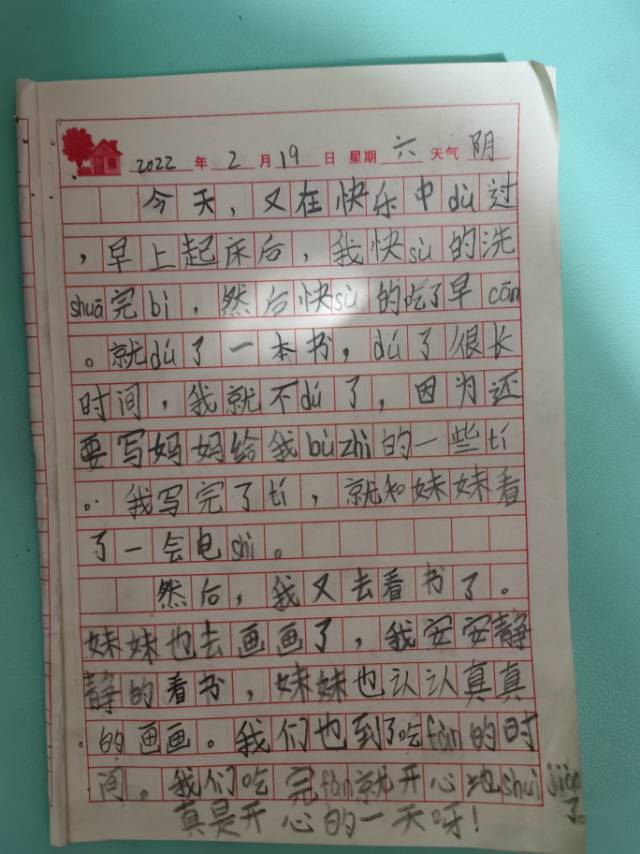 2022 年 2 月 19 日 星期 六 天气 阴
今天，又在快乐中dù过
，早上起床后，我快sù的洗
shuā完bì，然后快sù的吃了早cān
。就dú了一本书，dú了很长
时间，我就不dú了，因为还
要写妈妈给我bùzhì的一些tí
。我写完了tí，就和妹妹看
了一会电shì。
然后，我又去看书了。
妹妹也去画画了，我安安静
静的看书，妹妹也认认真真
的画画。我们也到了吃fàn的时
间。我们吃完fàn就开心地shuì jiào
了。
真是开心的一天呀！